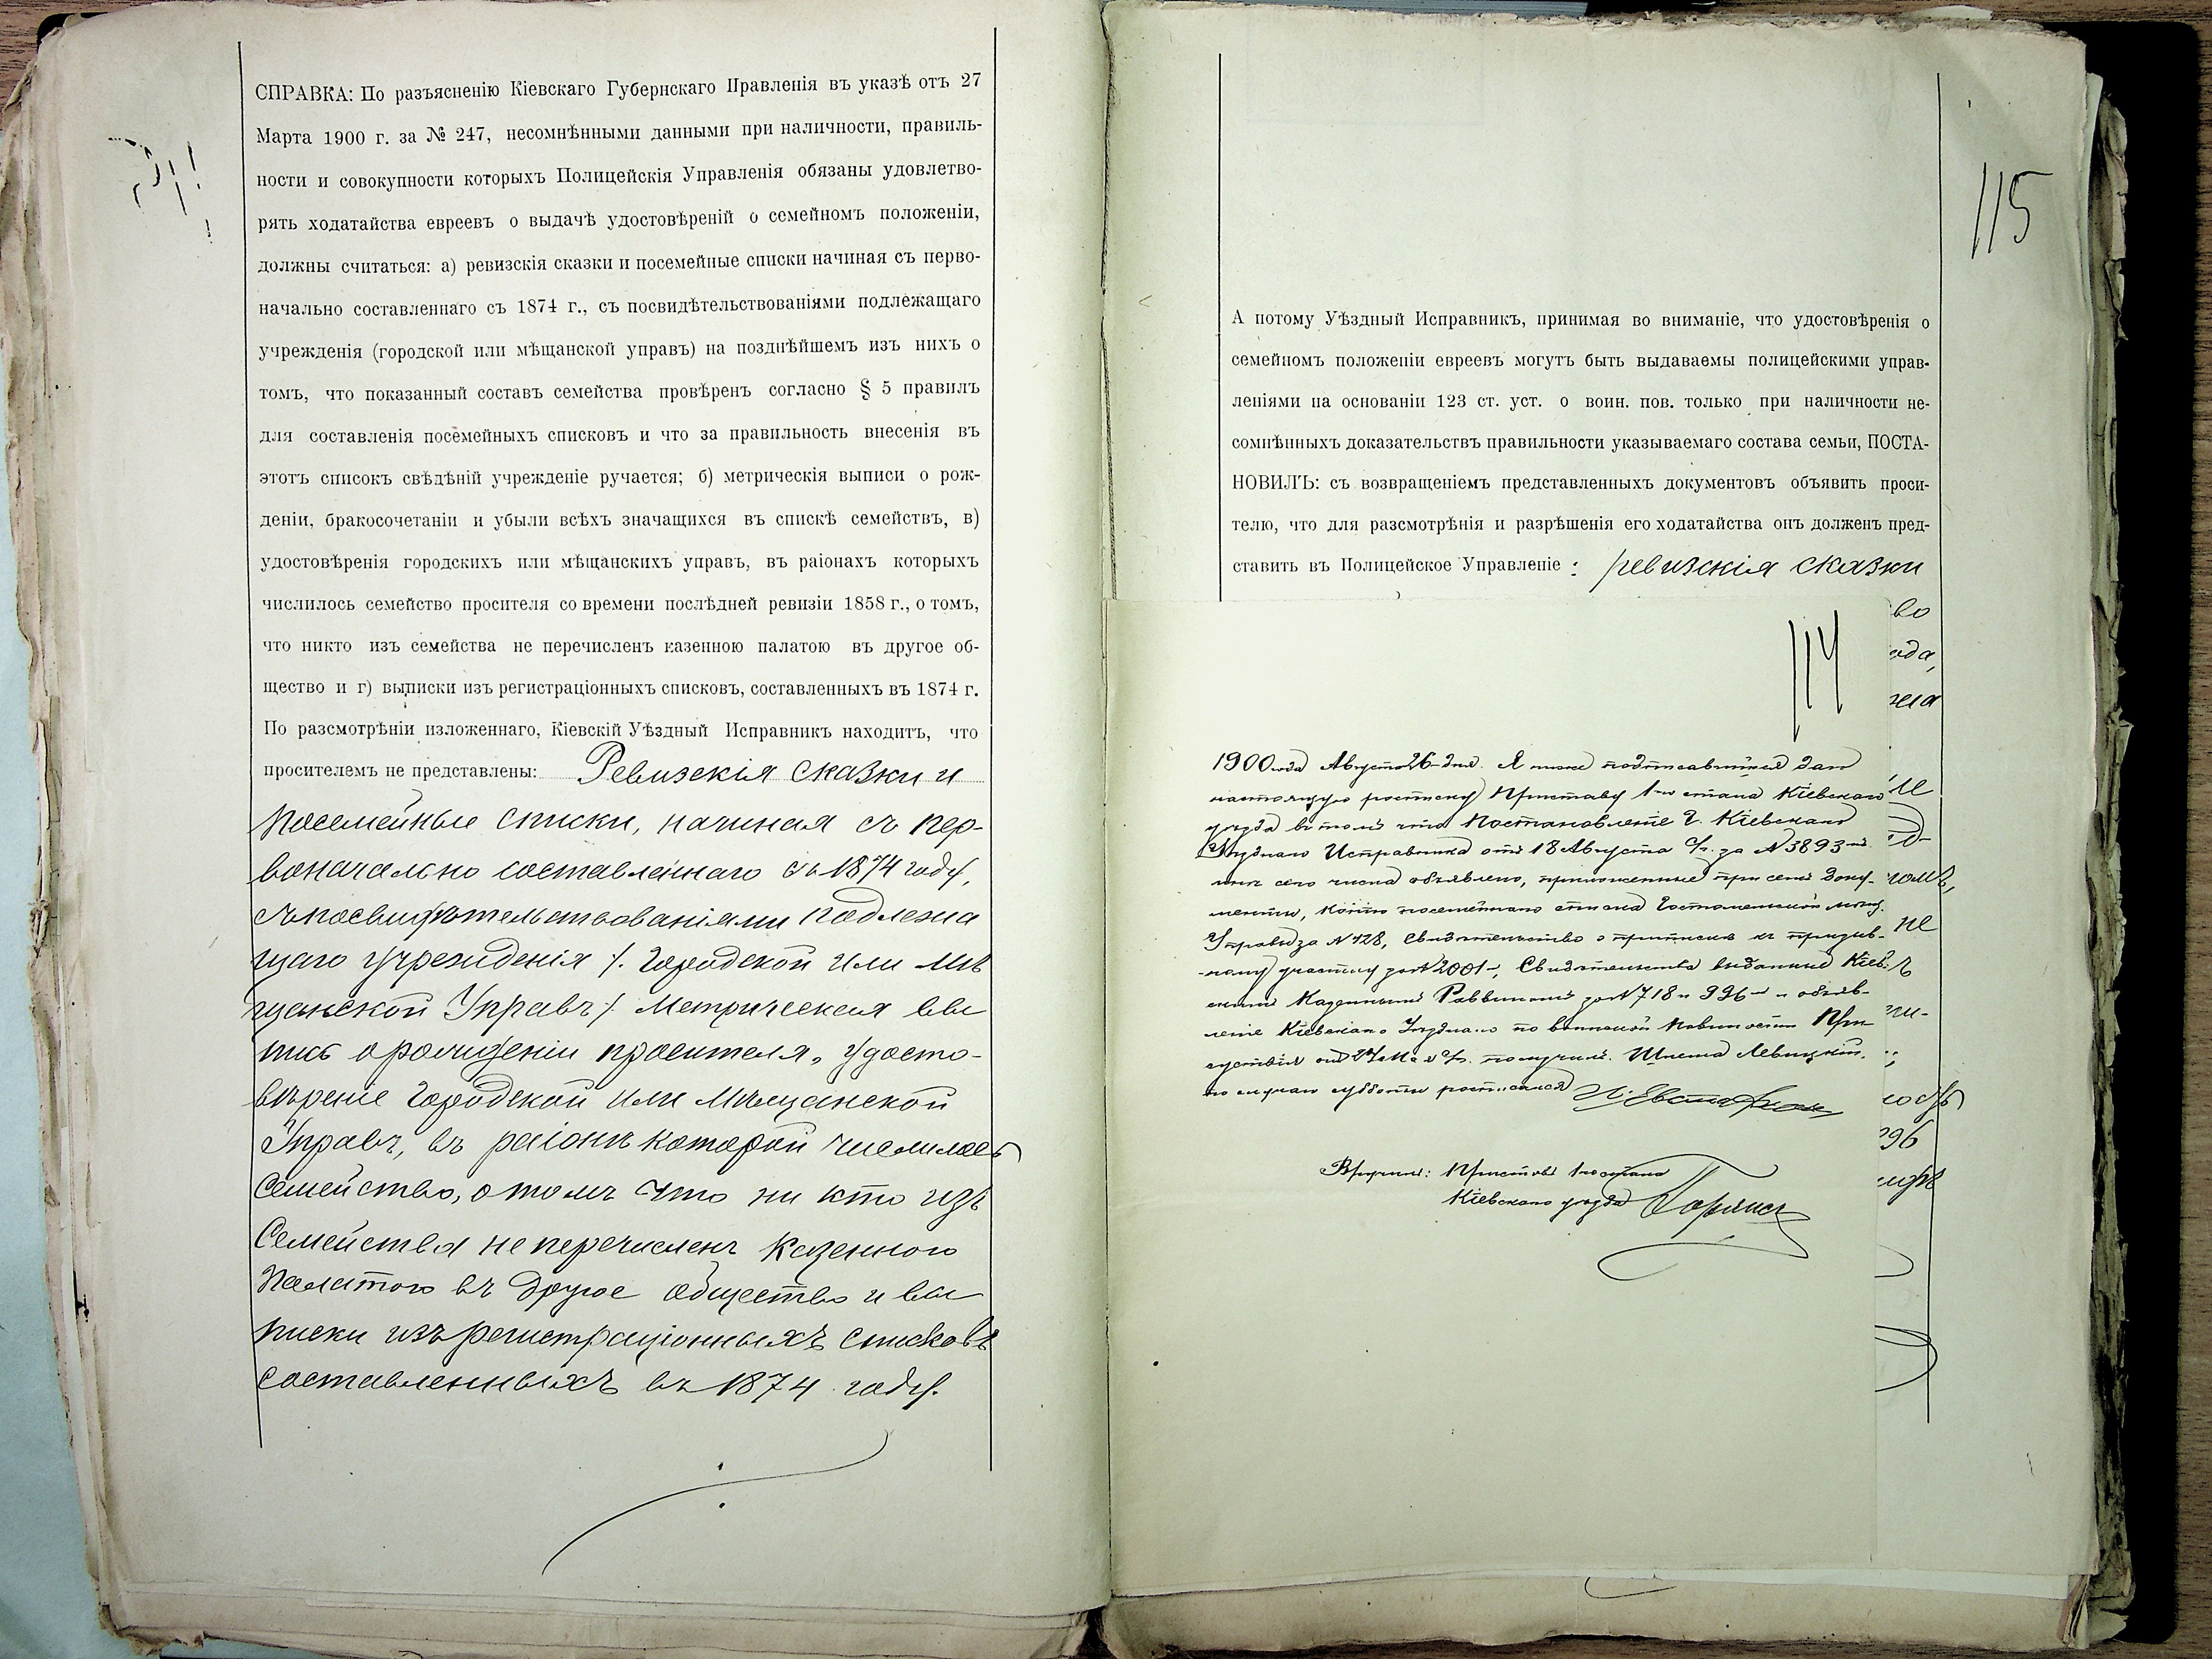 СПРАВКА: По разъясненію Кіевскаго Губернскаго Правленія въ указѣ отъ 27
Марта 1900 г. за № 247, несомнѣнными данными при наличности, правиль-
ности и совокупности которыхъ Полицейскія Управленія обязаны удовлетво-
рять ходатайства евреевъ о выдачѣ удостовѣреній о семейномъ положеніи,
должны считаться: а) ревизскія сказки и посемейные списки начиная съ перво-
начально составленнаго съ 1874 г., съ посвидѣтельствованіями подлежащаго
учрежденія (городской или мѣщанской управъ) на позднѣйшемъ изъ нихъ о
томъ, что показанный составъ семейства провѣренъ согласно § 5 правилъ
для составленія посемейныхъ списковъ и что за правильность внесенія въ
этотъ списокъ свѣдѣній учрежденіе ручается; б) метрическія выписи о рож-
деніи, бракосочетаніи и убыли всѣхъ значащихся въ спискѣ семействъ, в)
удостовѣренія городскихъ или мѣщанскихъ управъ, въ раіонахъ которыхъ
числилось семейство просителя со времени послѣдней ревизіи 1858 г., о томъ,
что никто изъ семейства не перечисленъ казенною палатою въ другое об-
щество и г) выписки изъ регистраціонныхъ списковъ, составленныхъ въ 1874 г.
По разсмотрѣніи изложеннаго, Кіевскій Уѣздный Исправникъ находитъ, что
просителемъ не представлены: Ревизскія сказки и
посемейные списки, начиная съ пер-
воначально составленнаго съ 1874 году,
съ посвидѣтельствованіями подлежа
щаго учрежденія /. Городской или Мѣ
щанской Управъ /. Метрическая вы
пись о рожденіи просителя, удосто-
вѣреніе Городской или Мѣщанской
Управъ, въ раіонѣ которой числилось
семейство, о томъ что ни кто изъ
Семейства не перечисленъ Казенною
Палатою въ другое общество и вы
писки изъ регистраціонныхъ списковъ
составленныхъ въ 1874 году.
115
А потому Уѣздный Исправникъ, принимая во вниманіе, что удостовѣренія о
семейномъ положеніи евреевъ могутъ быть выдаваемы полицейскими управ-
леніями на основаніи 123 ст. уст. о воин. пов. только при наличности не-
сомнѣнныхъ доказательствъ правильности указываемаго состава семьи, ПОСТА-
НОВИЛЪ: съ возвращеніемъ представленныхъ документовъ объявить проси-
телю, что для разсмотрѣнія и разрѣшенія его ходатайства онъ долженъ пред-
ставить въ Полицейское Управленіе: ревизскія сказки
114
1900 года Августа 26 дня. Я ниже подписавшійся далъ
настоящую росписку Приставу 1-го стана Кіевскаго
уѣзда въ томъ что Постановленіе Г. Кіевскаго
Уѣзднаго Исправника отъ 18 Августа с/г. за № 3893
мнѣ сего числа объявлено, приложенные при семъ доку-
менты, копію посемейнаго списка Гостомельской мѣщ.
Управы за № 428, Свидѣтельство о припискѣ къ призыв-
ному участку за № 2001, Свидѣтельства выданныя Кіев-
скимъ Казеннымъ Раввиномъ за № 718 и 996 и объяв-
леніе Кіевскаго Уѣзднаго по воинской повинности При
сутствія отъ 24 Мая с/г. получилъ. Шлема Левицкій,
по случаю субботы росписался
Вручилъ: Приставъ 1-го стана
Кіевскаго уѣзда